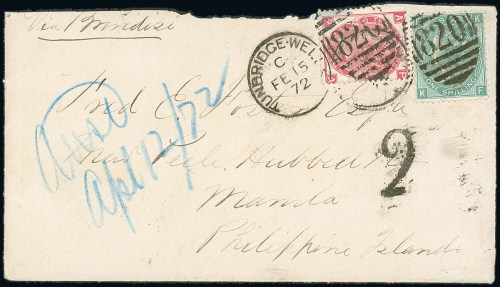 Via Brindisi
TUNBRIDGE-WELLS
C
FE 15
72
822
820
ONE SHILLING
K F
Fred E. Foster Esqre
Peele, Hubbell
Manila
Philippine Islands
2
Apl 12/72